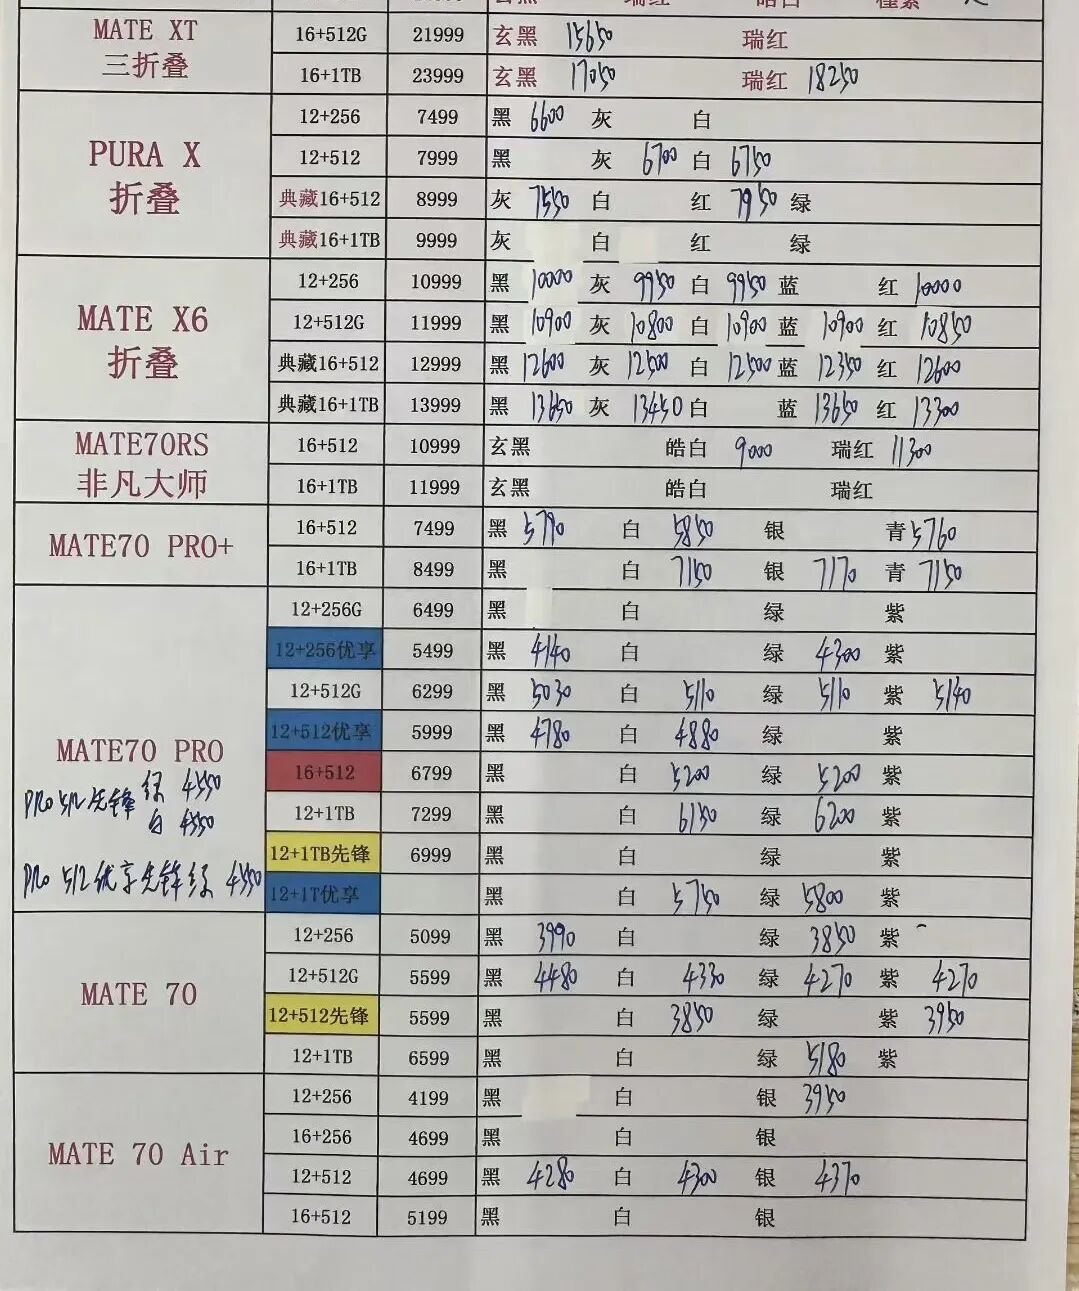 MATE XT
三折叠
16+512G 21999 玄黑 15650 瑞红
16+1TB 23999 玄黑 17050 瑞红 18250
PURA X
折叠
12+256 7499 黑 6600 灰 白
12+512 7999 黑 灰 6700 白 6750
典藏16+512 8999 灰 7550 白 红 7950 绿
典藏16+1TB 9999 灰 白 红 绿
MATE X6
折叠
12+256 10999 黑 10000 灰 9950 白 9950 蓝 红 10000
12+512G 11999 黑 10900 灰 10800 白 10900 蓝 10900 红 10850
典藏16+512 12999 黑 12600 灰 12500 白 12500 蓝 12350 红 12600
典藏16+1TB 13999 黑 13650 灰 13450 白 蓝 13650 红 13300
MATE70RS
非凡大师
16+512 10999 玄黑 皓白 9000 瑞红 11300
16+1TB 11999 玄黑 皓白 瑞红
MATE70 PRO+
16+512 7499 黑 5790 白 5850 银 青 5760
16+1TB 8499 黑 白 7150 银 7170 青 7150
MATE70 PRO
PRO 512先锋 绿 4550
白 4550
PRO 512优享先锋绿 4550
12+256G 6499 黑 白 绿 紫
12+256优享 5499 黑 4140 白 绿 4300 紫
12+512G 6299 黑 5030 白 5110 绿 5110 紫 5140
12+512优享 5999 黑 4780 白 4880 绿 紫
16+512 6799 黑 白 5200 绿 5200 紫
12+1TB 7299 黑 白 6150 绿 6200 紫
12+1TB先锋 6999 黑 白 绿 紫
12+1T优享 黑 白 5750 绿 5800 紫
MATE 70
12+256 5099 黑 3990 白 绿 3850 紫
12+512G 5599 黑 4480 白 4330 绿 4270 紫 4270
12+512先锋 5599 黑 白 3850 绿 紫 3950
12+1TB 6599 黑 白 绿 5180 紫
MATE 70 Air
12+256 4199 黑 白 银 3950
16+256 4699 黑 白 银
12+512 4699 黑 4280 白 4300 银 4370
16+512 5199 黑 白 银